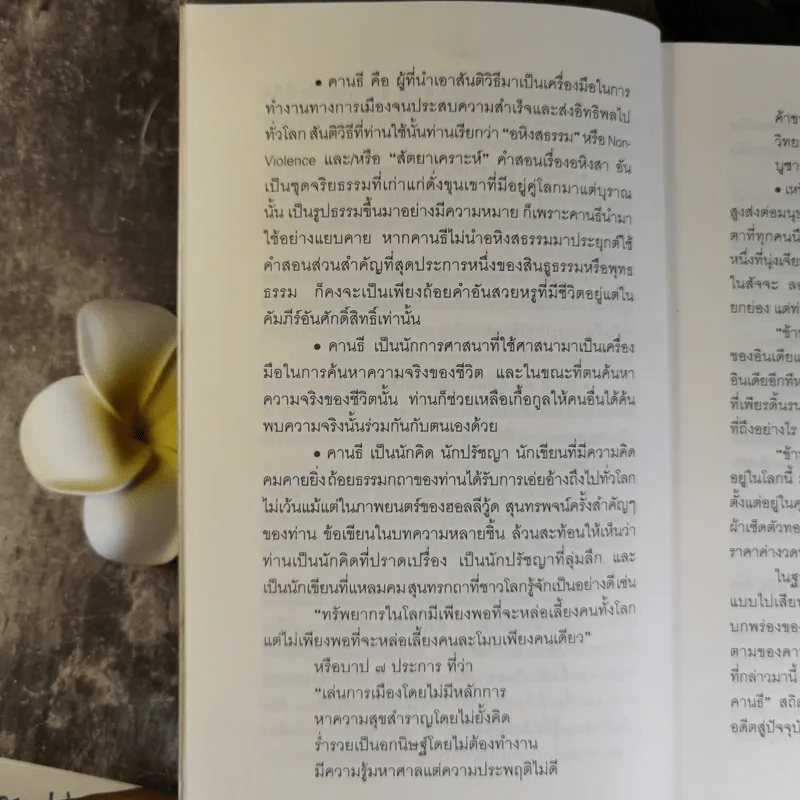 • คานธี คือ ผู้ที่นำเอาสันติวิธีมาเป็นเครื่องมือในการ
ทำงานทางการเมืองจนประสบความสำเร็จและส่งอิทธิพลไป
ทั่วโลก สันติวิธีที่ท่านใช้นั้นท่านเรียกว่า “อหิงสธรรม” หรือ Non-
Violence และ/หรือ “สัตยาเคราะห์” คำสอนเรื่องอหิงสา อัน
เป็นชุดจริยธรรมที่เก่าแก่ดั่งขุนเขาที่มีอยู่คู่โลกมาแต่บุราณ
นั้น เป็นรูปธรรมขึ้นมาอย่างมีความหมาย ก็เพราะคานธีนำมา
ใช้อย่างแยบคาย หากคานธีไม่นำอหิงสธรรมมาประยุกต์ใช้
คำสอนส่วนสำคัญที่สุดประการหนึ่งของสินธูธรรมหรือพุทธ
ธรรม ก็คงจะเป็นเพียงถ้อยคำอันสวยหรูที่มีชีวิตอยู่แต่ใน
คัมภีร์อันศักดิ์สิทธิ์เท่านั้น
• คานธี เป็นนักการศาสนาที่ใช้ศาสนามาเป็นเครื่อง
มือในการค้นหาความจริงของชีวิต และในขณะที่ตนค้นหา
ความจริงของชีวิตนั้น ท่านก็ช่วยเหลือเกื้อกูลให้คนอื่นได้ค้น
พบความจริงนั้นร่วมกันกับตนเองด้วย
• คานธี เป็นนักคิด นักปรัชญา นักเขียนที่มีความคิด
คมคายยิ่ง ถ้อยธรรมกถาของท่านได้รับการเอ่ยอ้างถึงไปทั่วโลก
ไม่เว้นแม้แต่ในภาพยนตร์ของฮอลลีวู้ด สุนทรพจน์ครั้งสำคัญๆ
ของท่าน ข้อเขียนในบทความหลายชิ้น ล้วนสะท้อนให้เห็นว่า
ท่านเป็นนักคิดที่ปราดเปรื่อง เป็นนักปรัชญาที่ลุ่มลึก และ
เป็นนักเขียนที่แหลมคม สุนทรกถาที่ชาวโลกรู้จักเป็นอย่างดี เช่น
“ทรัพยากรในโลกมีเพียงพอที่จะหล่อเลี้ยงคนทั้งโลก
แต่ไม่เพียงพอที่จะหล่อเลี้ยงคนละโมบเพียงคนเดียว”
หรือบาป ๗ ประการ ที่ว่า
“เล่นการเมืองโดยไม่มีหลักการ
หาความสุขสำราญโดยไม่ยั้งคิด
ร่ำรวยเป็นอกนิษฐ์โดยไม่ต้องทำงาน
มีความรู้มหาศาลแต่ความประพฤติไม่ดี
สูงส่งต่อมนุษ
ตาที่ทุกคนนึ
หนึ่งที่นุ่งเจีย
ในสัจจะ ลอ
ยกย่อง แต่ท่
“ข้า
ของอินเดียแ
อินเดียอีกที
ที่เพียรดิ้นรน
ที่ถึงอย่างไร
“ข้าพ
อยู่ในโลกนี้
ตั้งแต่อยู่ในคุ
ผ้าเช็ดตัวทอ
ราคาค่างวด
ในฐ
แบบไปเสีย
บกพร่องของ
ตามของคา
ที่กล่าวมานี้
คานธี” สถิต
อดีตสู่ปัจจุบั